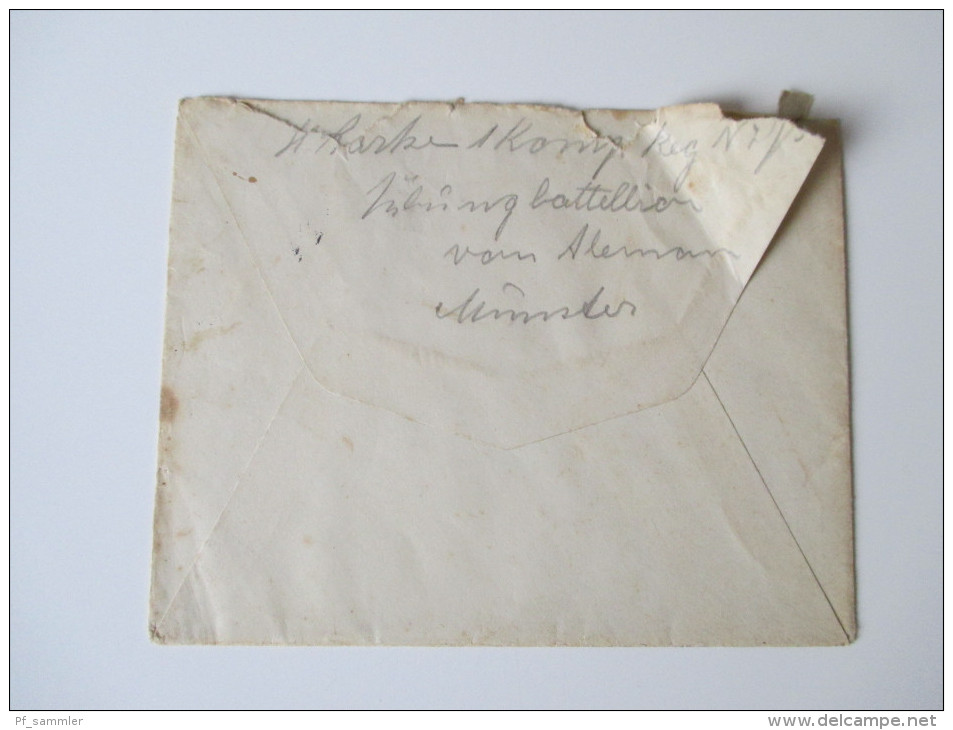 1 Komp Reg N
Übungbattellion
von Aleman
Münster
Pf_sammler
www.delcampe.net